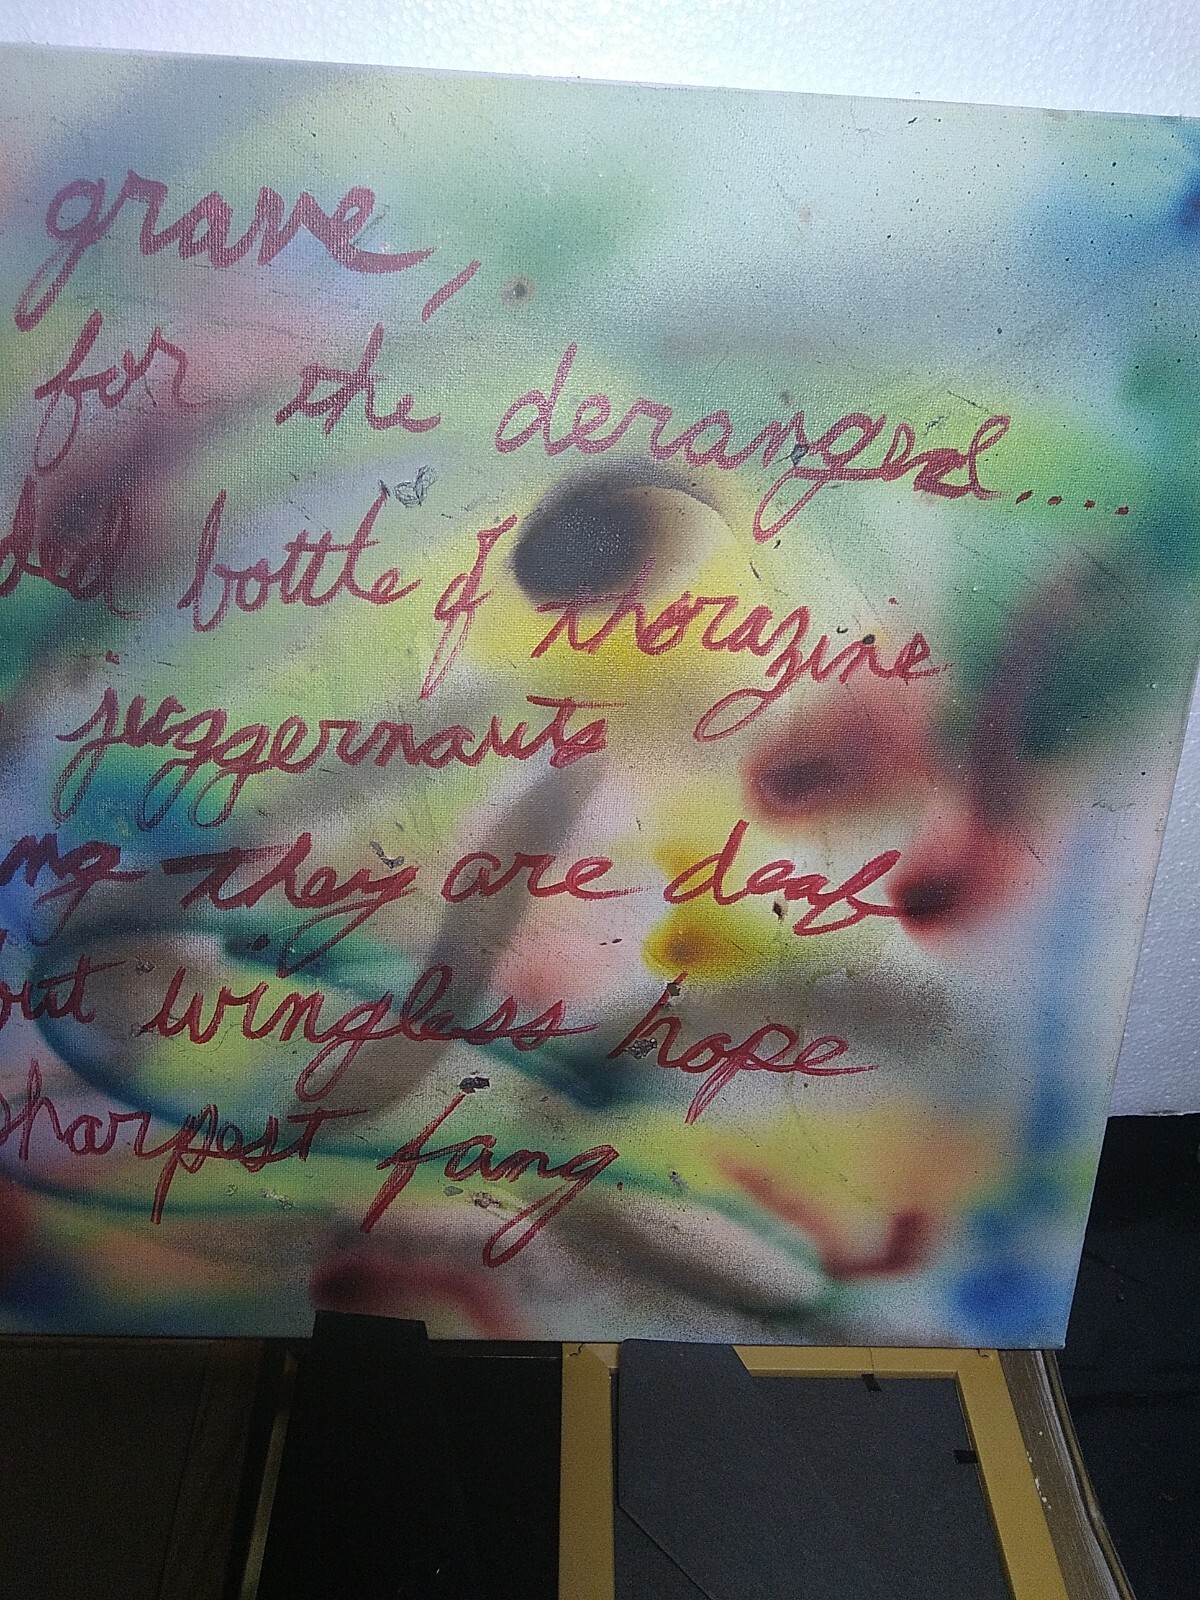 grave,
for the deranged....
ded bottle of thorazine
juggernauts
ng they are deaf
out wingless hope
sharpest fang.